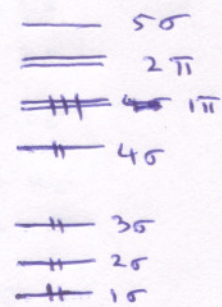 5σ
2π
1π
4σ
3σ
2σ
1σ